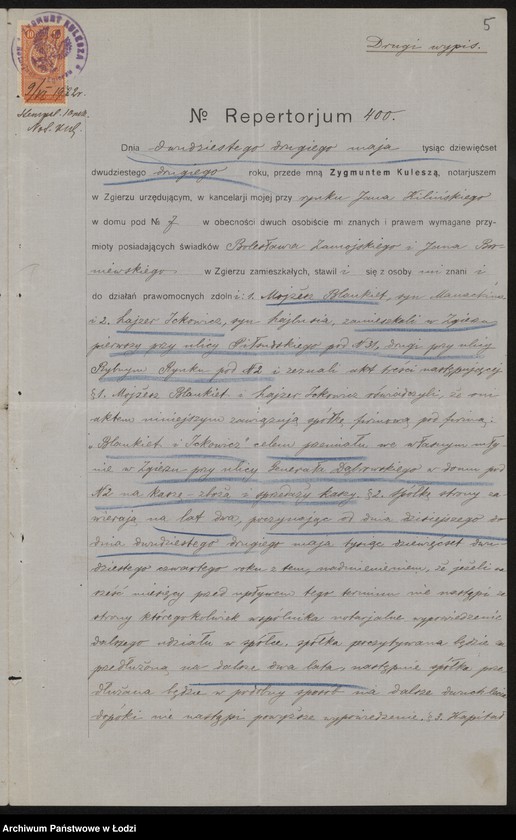 5
Drugi wypis.
ZYGMUNT KULESZA
9/VI 1922 r.
№ Repertorjum 400.
Dnia dwudziestego drugiego maja tysiąc dziewięćset
dwudziestego drugiego roku, przede mną Zygmuntem Kuleszą, notarjuszem
w Zgierzu urzędującym, w kancelarji mojej przy rynku Jana Kilińskiego
w domu pod № 7 w obecności dwuch osobiście mi znanych i prawem wymagane przy-
mioty posiadających świadków Bolesława Zamojskiego i Jana Bo-
niewskiego w Zgierzu zamieszkałych, stawili się z osoby mi znani i
do działań prawomocnych zdolni: 1. Mojżesz Blankiet, syn Manachima
i 2. Łajzer Ickowicz, syn Fajbusia, zamieszkali w Zgierzu
pierwszy przy ulicy Piłsudskiego pod №31, drugi przy ulicy
Rybnym Rynku pod №2 i zeznali akt treści następującej:
§1. Mojżesz Blankiet i Łajzer Ickowicz oświadczyli, że oni
aktem niniejszym zawiązują spółkę firmową pod firmą:
"Blankiet i Ickowicz" celem przemiału we własnym mły-
nie w Zgierzu przy ulicy Generała Dąbrowskiego w domu pod
№2 na kaszę zboża i sprzedaży kaszy. §2. Spółkę strony za-
wierają na lat dwa, poczynając od dnia dzisiejszego do
dnia dwudziestego drugiego maja tysiąc dziewięćset dwu-
dziestego czwartego roku z tem nadmienieniem, że jeżeli na
sześć miesięcy przed upływem tego terminu nie nastąpi ze
strony któregokolwiek wspólnika notarjalne wypowiedzenie
dalszego udziału w spółce, spółka poczytywana będzie za
przedłużoną na dalsze dwa lata, następnie spółka prze-
dłużana będzie w podobny sposób na dalsze dwuchlecia
dopóki nie nastąpi powyższe wypowiedzenie. §3. Kapitał
Archiwum Państwowe w Łodzi